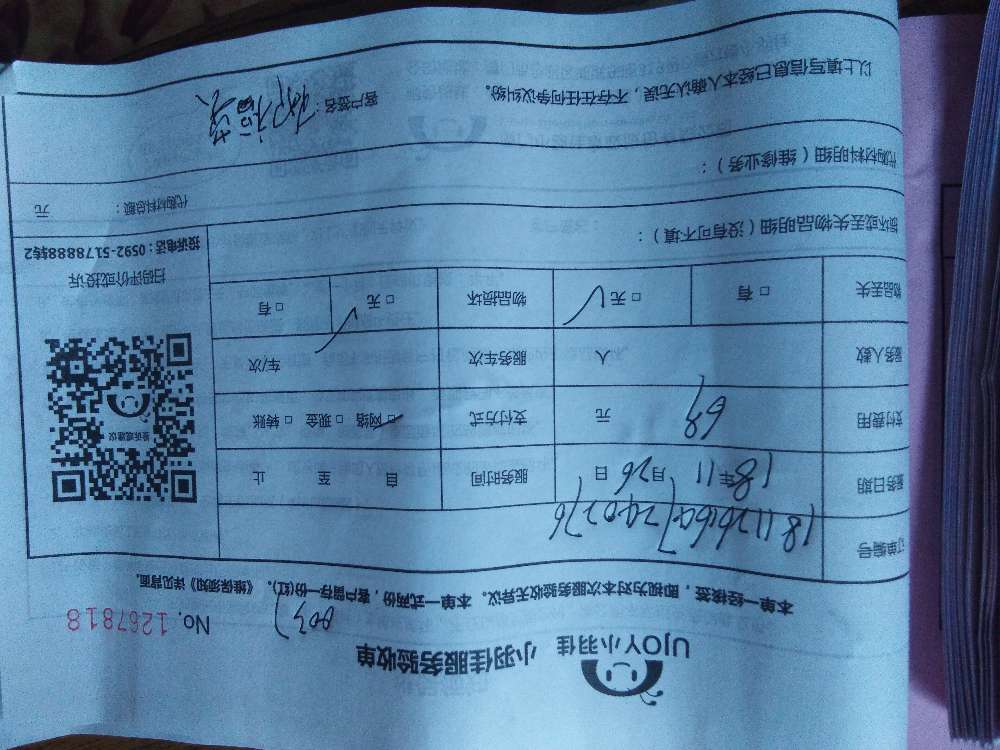 UJOY小羽佳 小羽佳服务验收单
No. 1267818
本单一经接签，即视为对本次服务验收无异议。本单一式两份，客户留存一份(红)。《维保须知》详见背面。
订单编号
服务日期 18年11月26日 服务时间 自 至 止
支付费用 69元 支付方式 □网络 □现金 □转账
服务人数 人 服务车次 车/次
物品丢失 □有 □无 物品损坏 □无 □有
我要评建议
扫码评价或投诉
投诉电话：0592-5178888转2
损坏或丢失物品明细（没有可不填）：
代购材料总额： 元
代购材料明细（维修业务）：
以上填写信息已经本人确认无误，不存在任何争议纠纷。
客户签名：